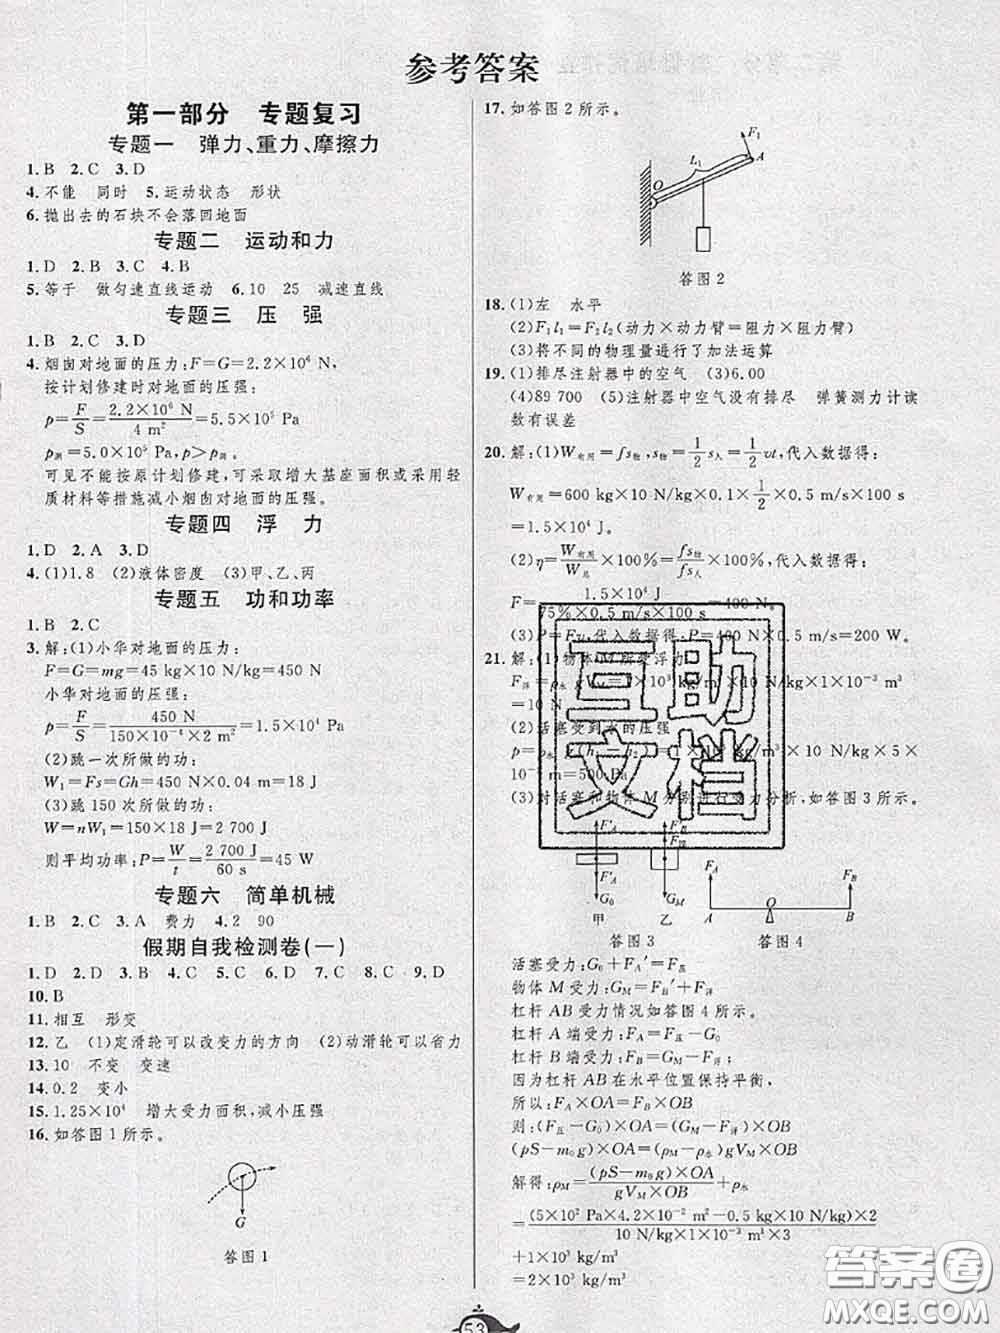 参考答案
第一部分　专题复习
专题一　弹力、重力、摩擦力
1. B　2. C　3. D
4. 不能　同时　5. 运动状态　形状
6. 抛出去的石块不会落回地面
专题二　运动和力
1. D　2. B　3. C　4. B
5. 等于　做匀速直线运动　6. 10　25　减速直线
专题三　压　强
1. B　2. C　3. D
4. 烟囱对地面的压力:F=G=2.2×10⁶ N
按计划修建时对地面的压强:
p=F/S=2.2×10⁶ N/4 m²=5.5×10⁵ Pa
p测=5.0×10⁵ Pa,p>p测。
可见不能按原计划修建,可采取增大基座面积或采用轻
质材料等措施减小烟囱对地面的压强。
专题四　浮　力
1. D　2. A　3. D
4. (1)1.8　(2)液体密度　(3)甲、乙、丙
专题五　功和功率
1. B　2. C
3. 解:(1)小华对地面的压力:
F=G=mg=45 kg×10 N/kg=450 N
小华对地面的压强:
p=F/S=450 N/150×10⁻⁴×2 m²=1.5×10⁴ Pa
(2)跳一次所做的功:
W₁=Fs=Gh=450 N×0.04 m=18 J
(3)跳 150 次所做的功:
W=nW₁=150×18 J=2 700 J
则平均功率:P=W/t=2 700 J/60 s=45 W
专题六　简单机械
1. B　2. C　3. A　费力　4. 2　90
假期自我检测卷(一)
1. D　2. D　3. B　4. C　5. C　6. D　7. C　8. C　9. D
10. B
11. 相互　形变
12. 乙　(1)定滑轮可以改变力的方向　(2)动滑轮可以省力
13. 10　不变　变速
14. 0.2　变小
15. 1.25×10⁴　增大受力面积,减小压强
16. 如答图 1 所示。
G
答图 1
17. 如答图 2 所示。
F₁
L₁
A
O
答图 2
18. (1)左　水平
(2)F₁l₁=F₂l₂(动力×动力臂=阻力×阻力臂)
(3)将不同的物理量进行了加法运算
19. (1)排尽注射器中的空气　(3)6.00
(4)89 700　(5)注射器中空气没有排尽　弹簧测力计读
数有误差
20. 解:(1)W有用=fs物,s物=1/2 s人=1/2 vt,代入数据得:
W有用=600 kg×10 N/kg×0.1×1/2×0.5 m/s×100 s
=1.5×10⁴ J。
(2)η=W有用/W总×100%=fs物/Fs人×100%,代入数据得:
F=1.5×10⁴ J/75%×0.5 m/s×100 s=400 N。
(3)P=Fv,代入数据得:P=400 N×0.5 m/s=200 W。
21. 解:(1)物体 M 所受浮力
F浮=ρ水gVM=1×10³ kg/m³×10 N/kg×1×10⁻³ m³
=10 N
(2)活塞受到水的压强
×10 N/kg×5×
10⁻² m=500 Pa
(3)对活塞和物体 M 分别进行受力分析,如答图 3 所示。
互助
文档
F′A
F′A
G₀
甲
GM
乙
答图 3
FA
FB
A
O
B
答图 4
活塞受力:G₀+FA′=F压
物体 M 受力:GM=FB′+F浮
杠杆 AB 受力情况如答图 4 所示。
杠杆 A 端受力:FA=F压−G₀
杠杆 B 端受力:FB=GM−F浮;
因为杠杆 AB 在水平位置保持平衡,
所以:FA×OA=FB×OB
则:(F压−G₀)×OA=(GM−F浮)×OB
(pS−m₀g)×OA=(ρM−ρ水)gVM×OB
解得:ρM=(pS−m₀g)×OA/gVM×OB+ρ水
=(5×10² Pa×4.2×10⁻² m²−0.5 kg×10 N/kg)×2/10 N/kg×1×10⁻³ m³×3
+1×10³ kg/m³
=2×10³ kg/m³
53
答案圈
MXQE.COM